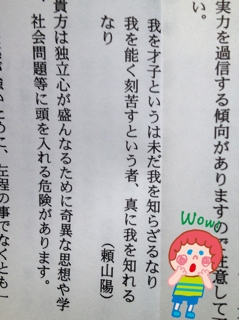 実力を過信する傾向がありますので注意して
い。
我を才子というは未だ我を知らざるなり
我を能く刻苦すという者、真に我を知れる
なり
(頼山陽)
貴方は独立心が盛んなるために奇異な思想や学
、社会問題等に頭を入れる危険があります。
ために、左程の事でなくとも
Wow